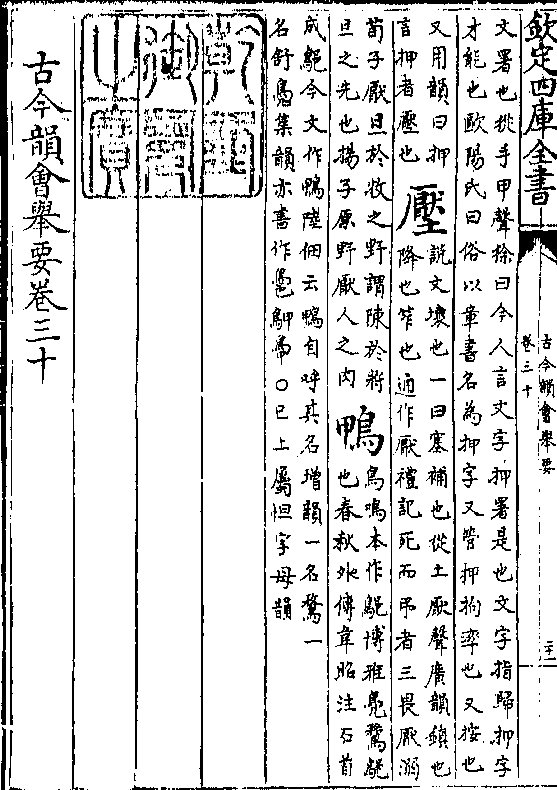 欽定四庫全書
古今韻會舉要
卷三十
二十一
文署也從手甲聲徐曰今人言文字押署是也文字指歸押字
才能也歐陽氏曰俗以草書名為押字又管押拘率也又按也
又用韻曰押
言押者壓也
壓
說文壞也一曰塞補也從土厭聲廣韻鎮也
降也笮也通作厭禮記死而弔者三畏厭溺
荀子厭旦於牧之野謂陳於將
旦之先也揚子原野厭人之肉
鴨
鳥鳴本作鴄博雅鳧鶩鴄
也春秋外傳韋昭注石首
成鴄今文作鴨陸佃云鴨自呼其名增韻一名鶩一
名舒鳧集韻亦書作𪁗鴨鳬○已上屬怛字母韻
乾隆御覽之寶
古今韻會舉要卷三十